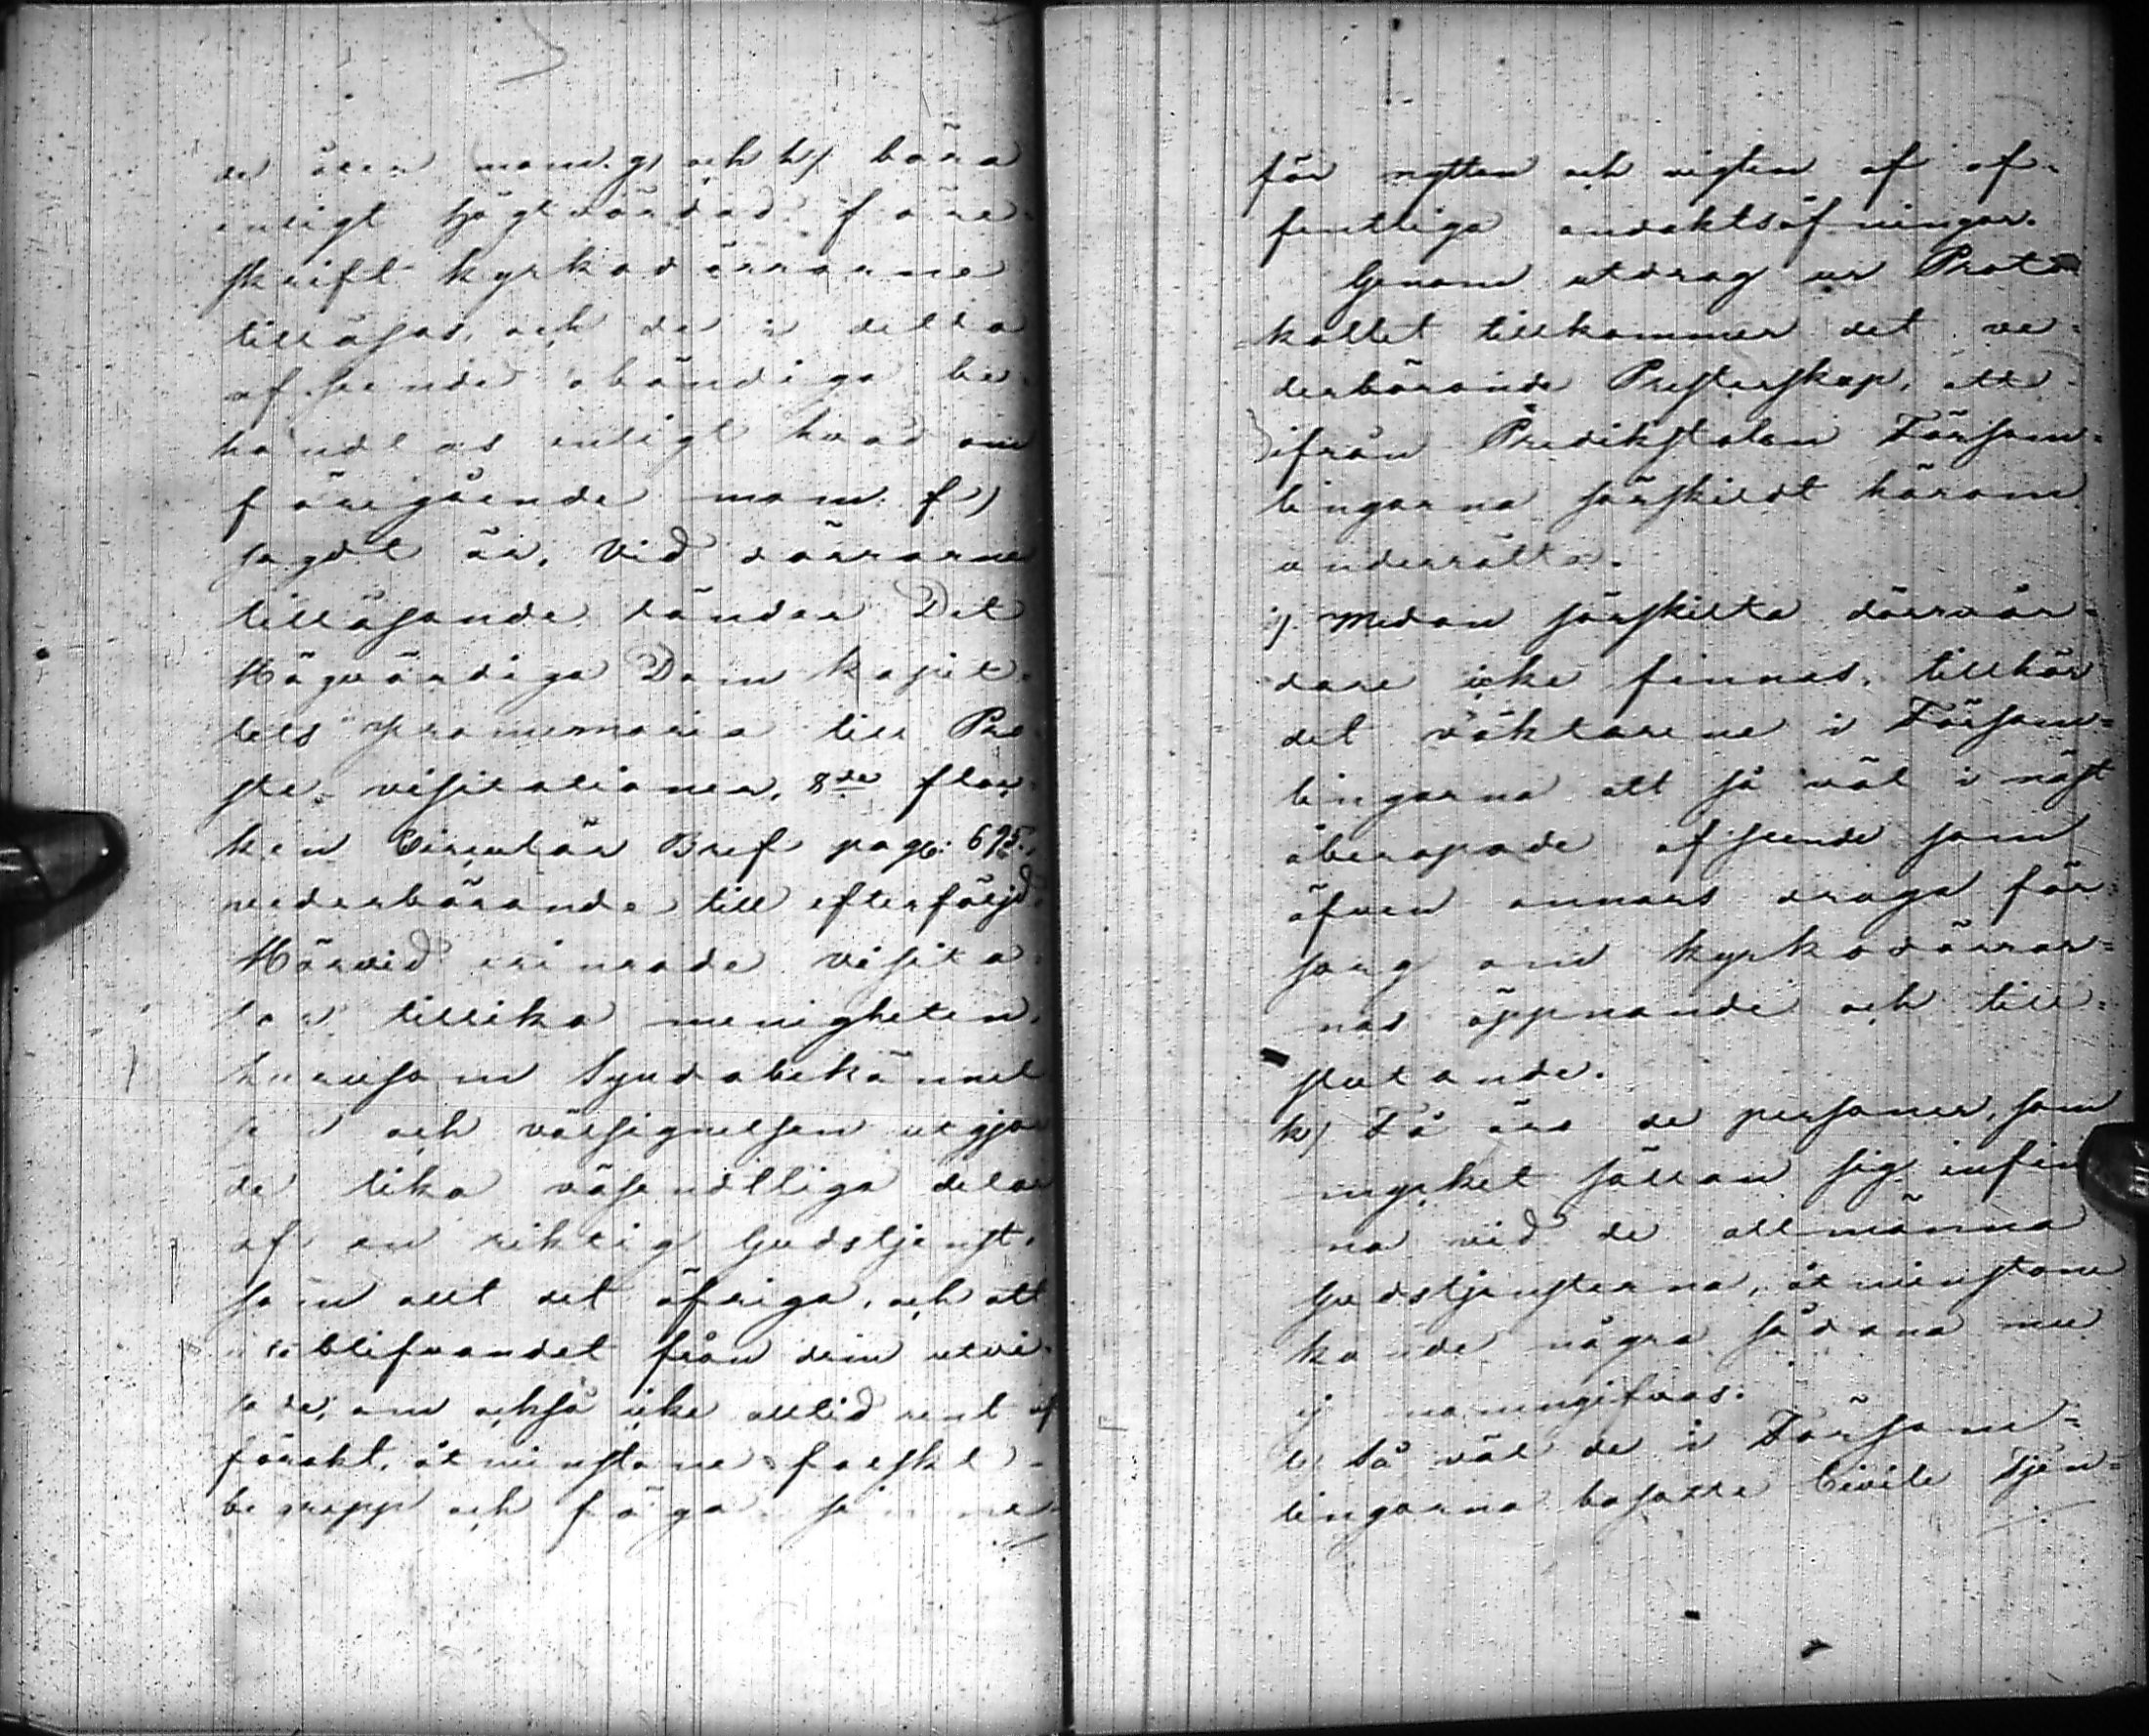 de även mom. g) och h). böra
enligt högvördad före-
skrift kyrkodörrarne
tillåsas, och de i detta
afseende obändiga be-
handlas enligt hvad om
föregående mom. f)
sagdt är. Vid dörrarne
tillåsande länder Det
Högvördiga Dom kapit-
lets promemoria till Pro-
ste-visitationer, 8de floc-
ken Circulär Bref pag: 695.,
vederbörande till efterföljd.
Härvid erinrade visita-
tor tillika menigheten,
hurusom Syndabekännel
sen och välsignelsen utgjor
de lika väsendtliga delar
af en riktig Gudstjenst,
som allt det öfriga, och att
uteblifvandet från dem utvi-
sade, om också icke alltid rent af
förakt, åtminstone falskt
begrepp och föga sinne
för nyttan och vigten af of-
fentliga andaktsöfningar.
Genom utdrag ur Proto
kollet tillkommer det ve-
derbörande Presterskap, att
ifrån Predikstolen Försam-
lingarna särskildt härom
underrätta.
i). Medan särskilta dörrvär-
dare icke finnas, tillhör
det väktarene i Försam-
lingarna att så väl i näst
åberopade afseende som
äfven annars draga för-
sorg om kyrkodörrar-
nas öppnande och till-
slutande.
k) Få äro de personer, som
mycket sällan sig infin
na vid de allmänna
Gudstjensterna, åtminstone
kunde några sådana nu
ej namngifvas.
l) Så väl de i Försam-
lingarna bosatte Civile Tjen-